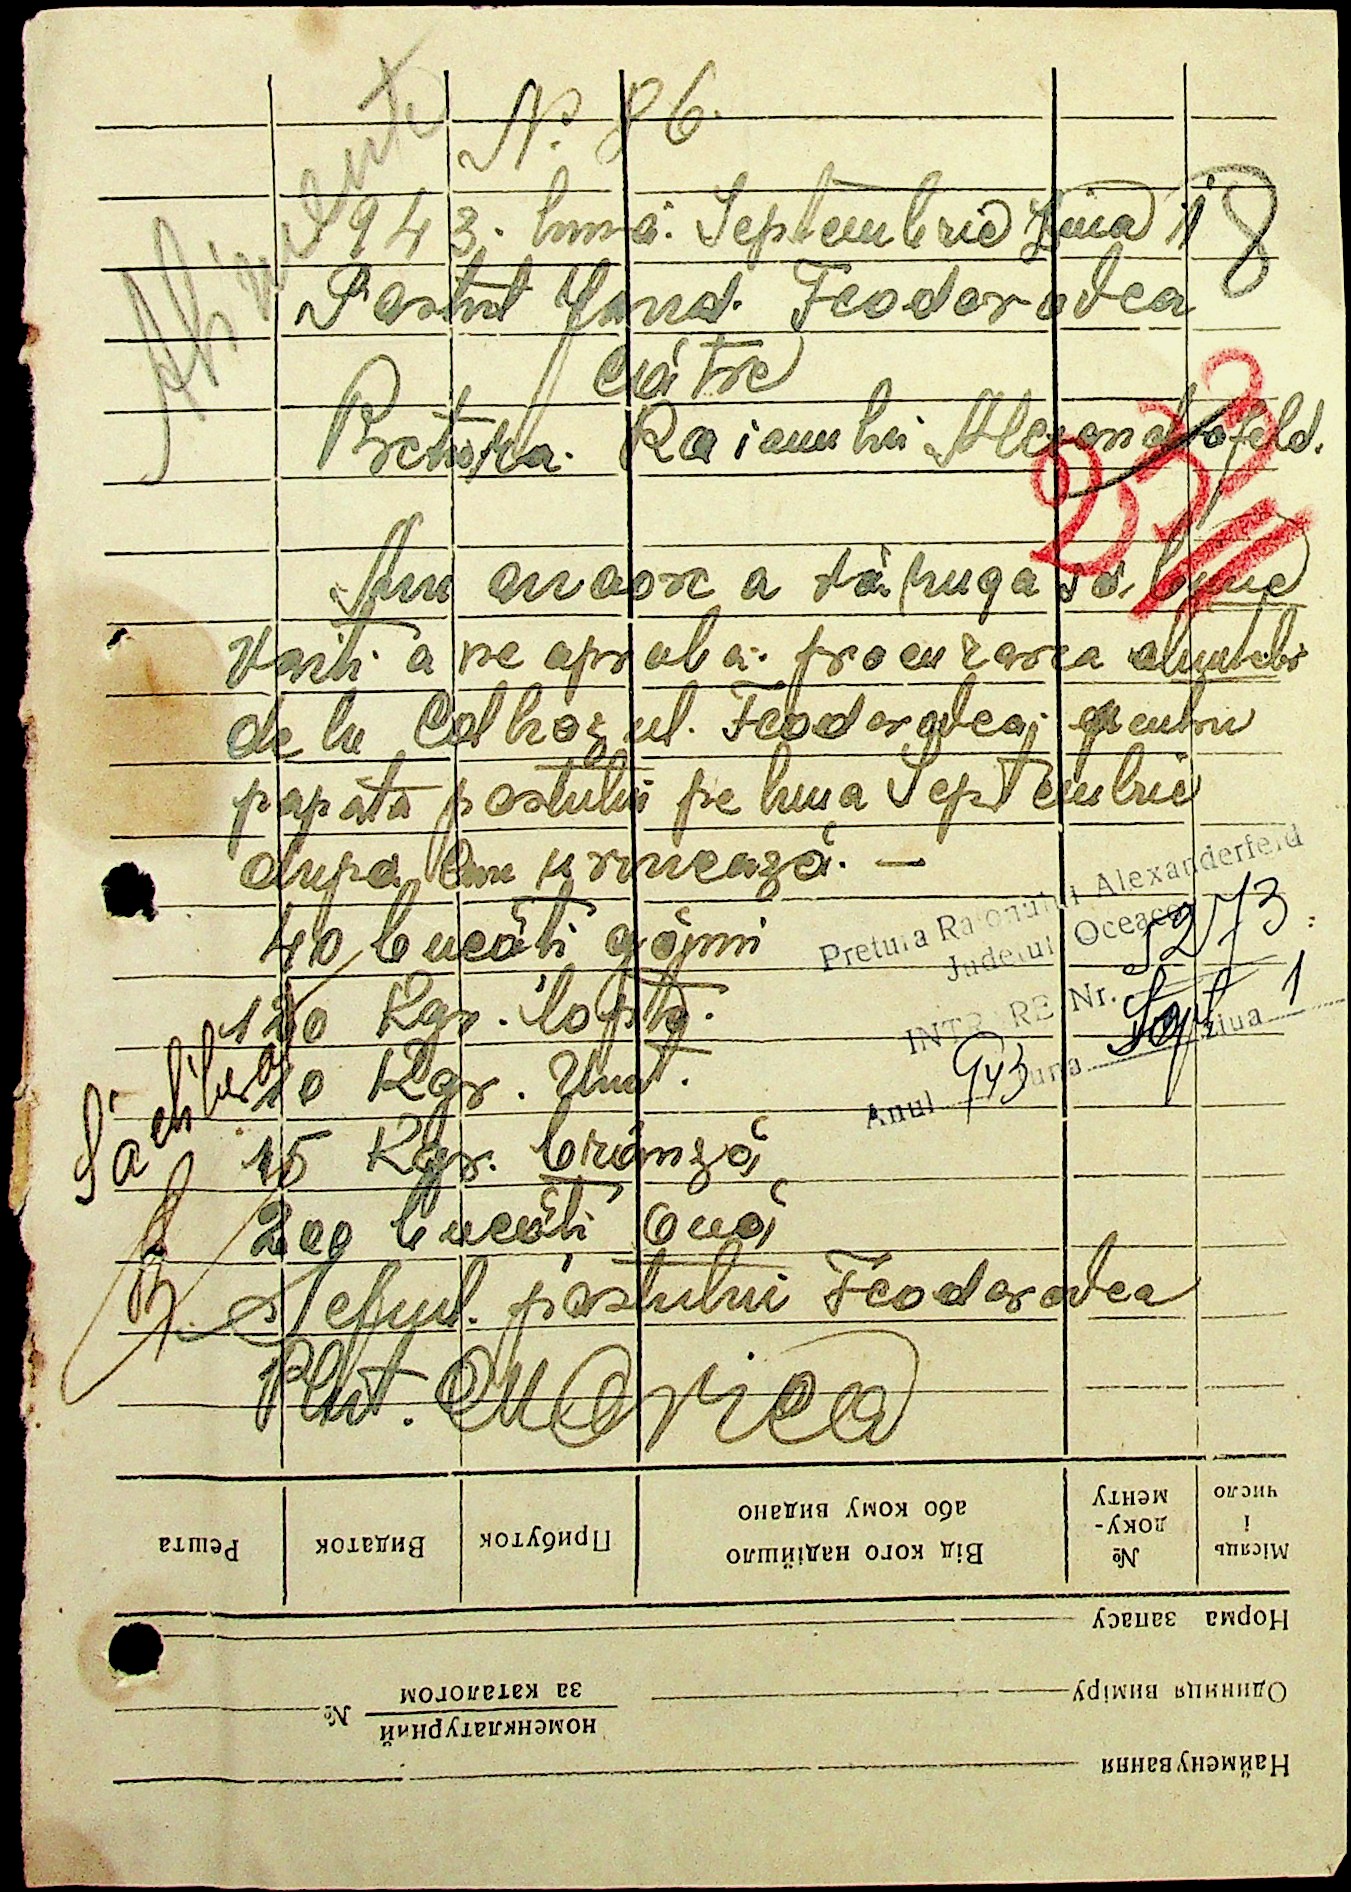 Alimente
N. 86.
943. luna. Septembrie Ziua 1
8
Postul Jand. Feodorovca
către
Pretura. Raionului Alexandrofeld.
233
Am onoare a vă ruga să bine
voiti a ne aproba. procurarea alimentelor
de la Colhozul. Feodorovca; pentru
popota postului pe luna Septembrie
dupa cum urmează. —
40 bucăti găini
120 Kgr. lapte.
10 Kgr. Unt.
15 Kgr. brânză
200 bucăti ouă
Șeful. postului Feodorovca
Plut.
Pretura Raionului Alexanderfeld
Judetul Oceacov
INTRARE Nr. 5273
Anul 943 Luna Sept Ziua 1
Решта
Видаток
Прибуток
Від кого надійшло
або кому видано
№
доку-
менту
Місяць
і
число
Норма запасу
Одиниця виміру
номенклатурний
за каталогом
№
Найменування